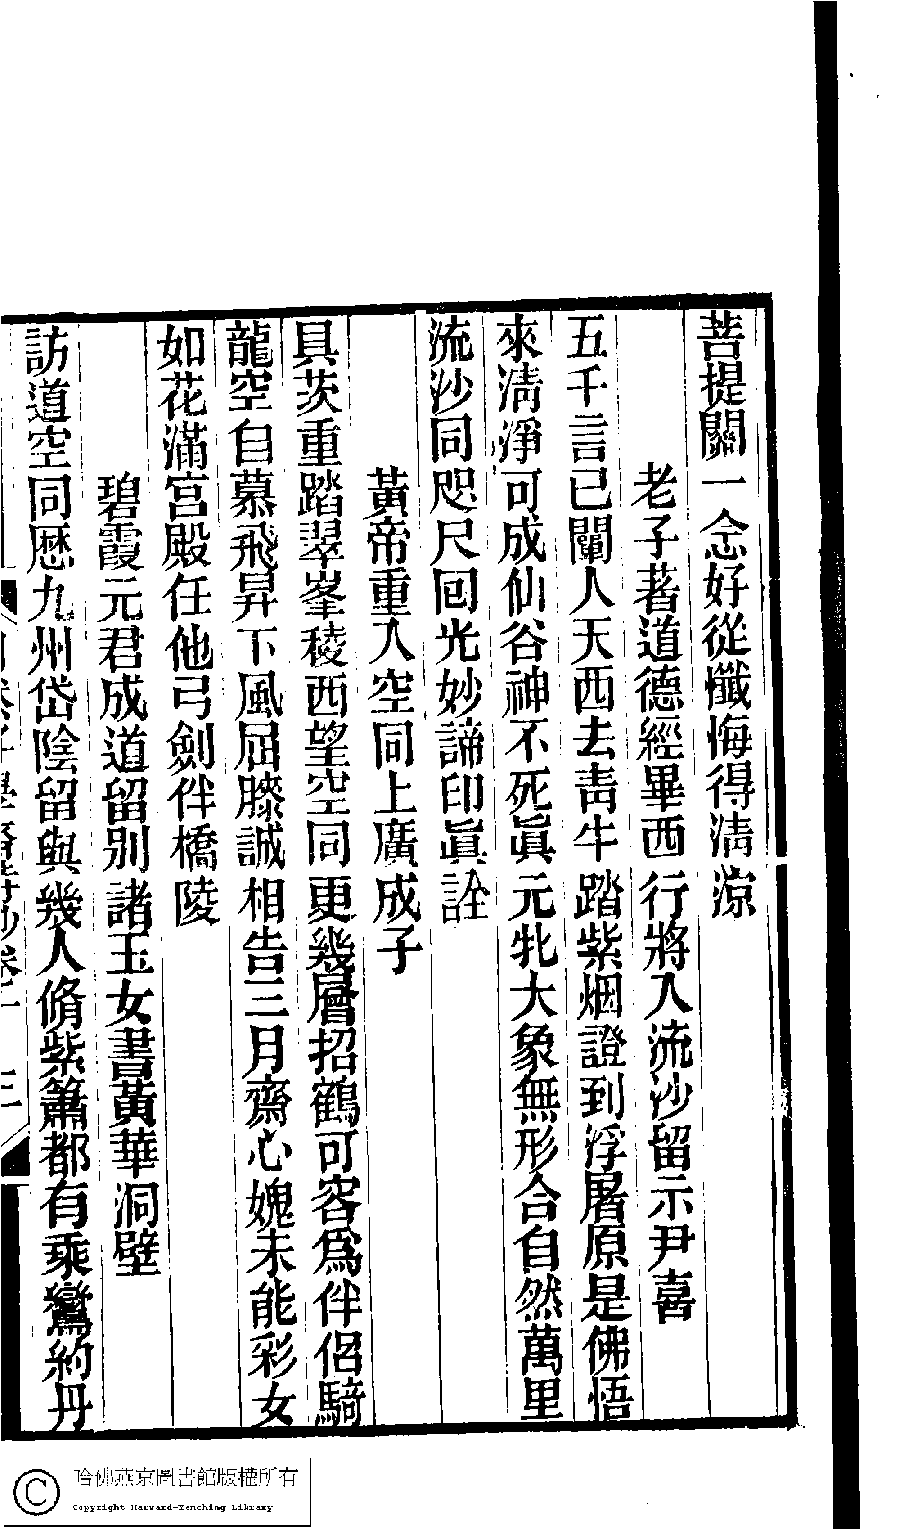 菩提關一念好從懺悔得清涼
老子著道德經畢西行將入流沙留示尹喜
五千言已闡人天西去青牛踏紫烟證到浮屠原是佛悟
來淸淨可成仙谷神不死眞元牝大象無形合自然萬里
流沙同咫尺囘光妙諦印眞詮
黃帝重入空同上廣成子
具茨重踏翠峯稜西望空同更幾層招鶴可容爲伴侶騎
龍空自慕飛昇下風屈膝誠相告三月齋心媿未能彩女
如花滿宮殿任他弓劍伴橋陵
碧霞元君成道留別諸玉女書黃華洞壁
訪道空同歷九州岱陰留與幾人脩紫簫都有乘鸞約丹
哈佛燕京圖書館版權所有
Copyright Harvard-Yenching Library